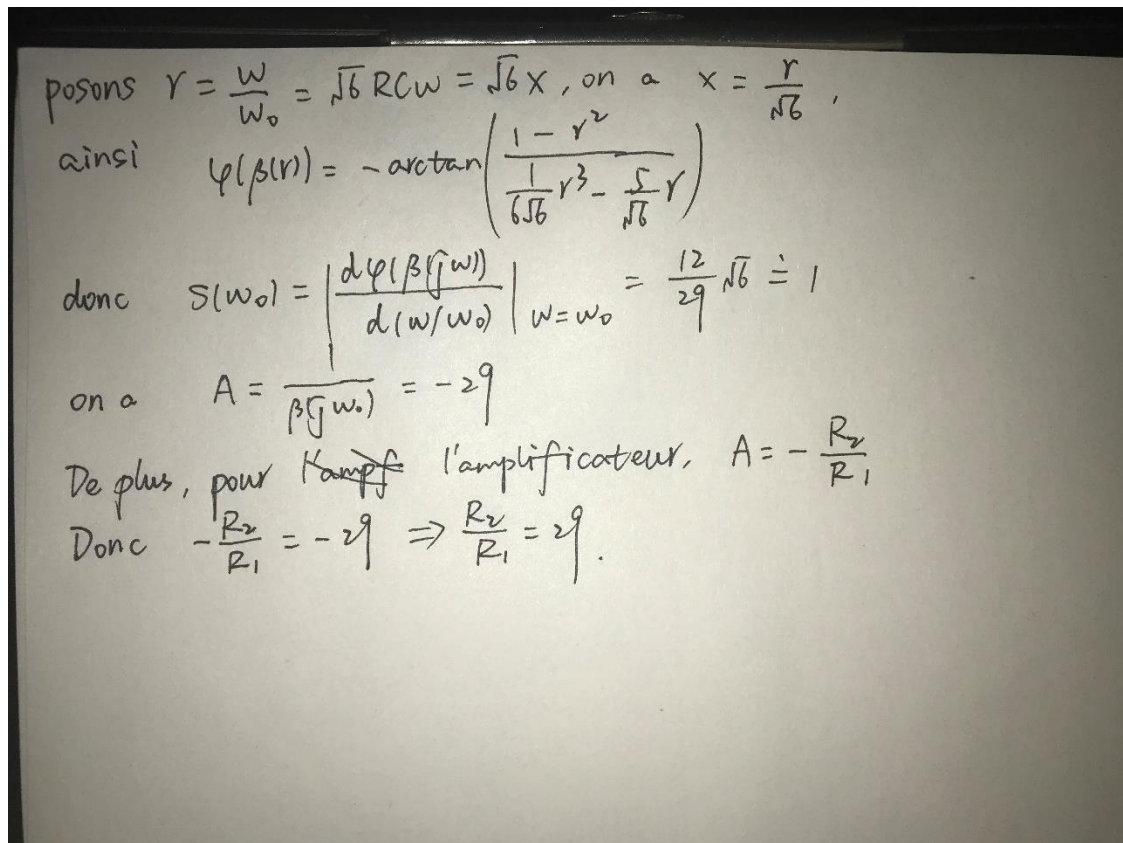 posons r = w/w₀ = √6 RCw = √6 x, on a x = r/√6,
ainsi φ(β(r)) = -arctan((1 - r²)/(1/(6√6) r³ - 5/√6 r))
donc S(w₀) = |dφ(β(jw))/d(w/w₀)| w=w₀ = 12/29 √6 ≐ 1
on a A = 1/β(jw₀) = -29
De plus, pour l'amplificateur, A = - R₂/R₁
Donc -R₂/R₁ = -29 ⇒ R₂/R₁ = 29.